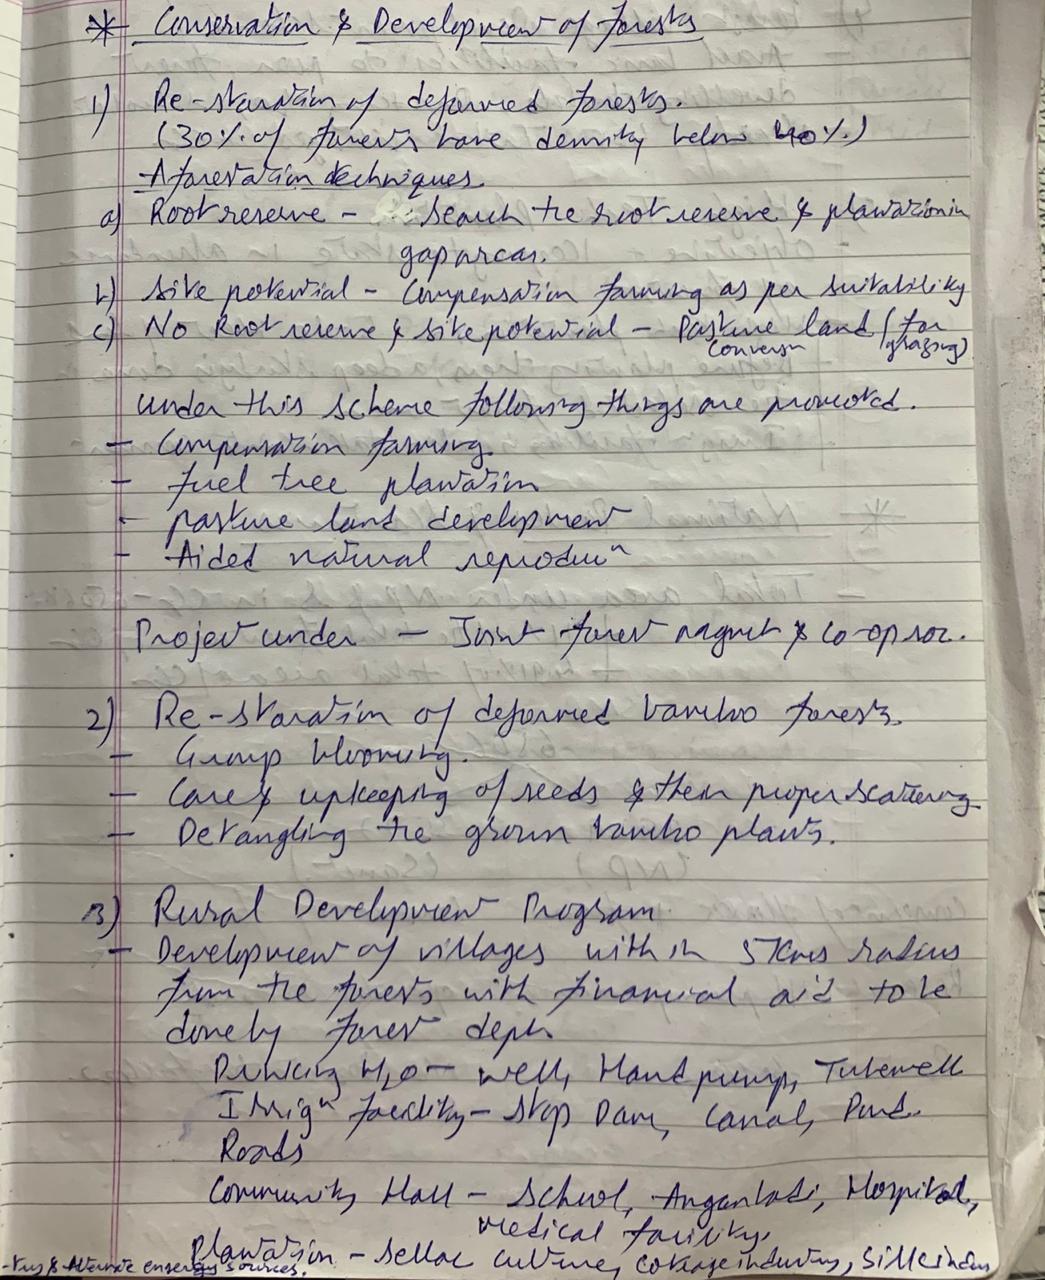 * Conservation & Development of forests
1) Re-storation of deformed forests.
(30% of forests have density below 40%.)
Aforestation techniques.
a) Root reserve - Search the root reserve & plantation in
gap areas.
b) Site potential - Compensation farming as per suitability
c) No Root reserve & site potential - Pasture land (for
conversn grazing)
under this scheme following things are promoted.
- Compensation farming.
- fuel tree plantation
- pasture land development
- Aided natural reproduⁿ
Project under - Joint forest magmet & co-op soc.
2) Re-storation of deformed bamboo forests.
- Group blooming.
- Care & upkeeping of seeds & their proper scattering
- Detangling the grown bamboo plants.
3) Rural Development Program
- Development of villages with in 5 Kms radius
from the forests with financial aid to be
done by forest dept.
Drinking H2O - well, Hand pump, Tubewell
Irrigⁿ facility - Stop Dam, Canal, Pond.
Roads
Community Hall - School, Anganbadi, Hospital,
medical facility.
Plantation - Sellac culture, cottage industry, Silk indus
& Alternate energy sources.